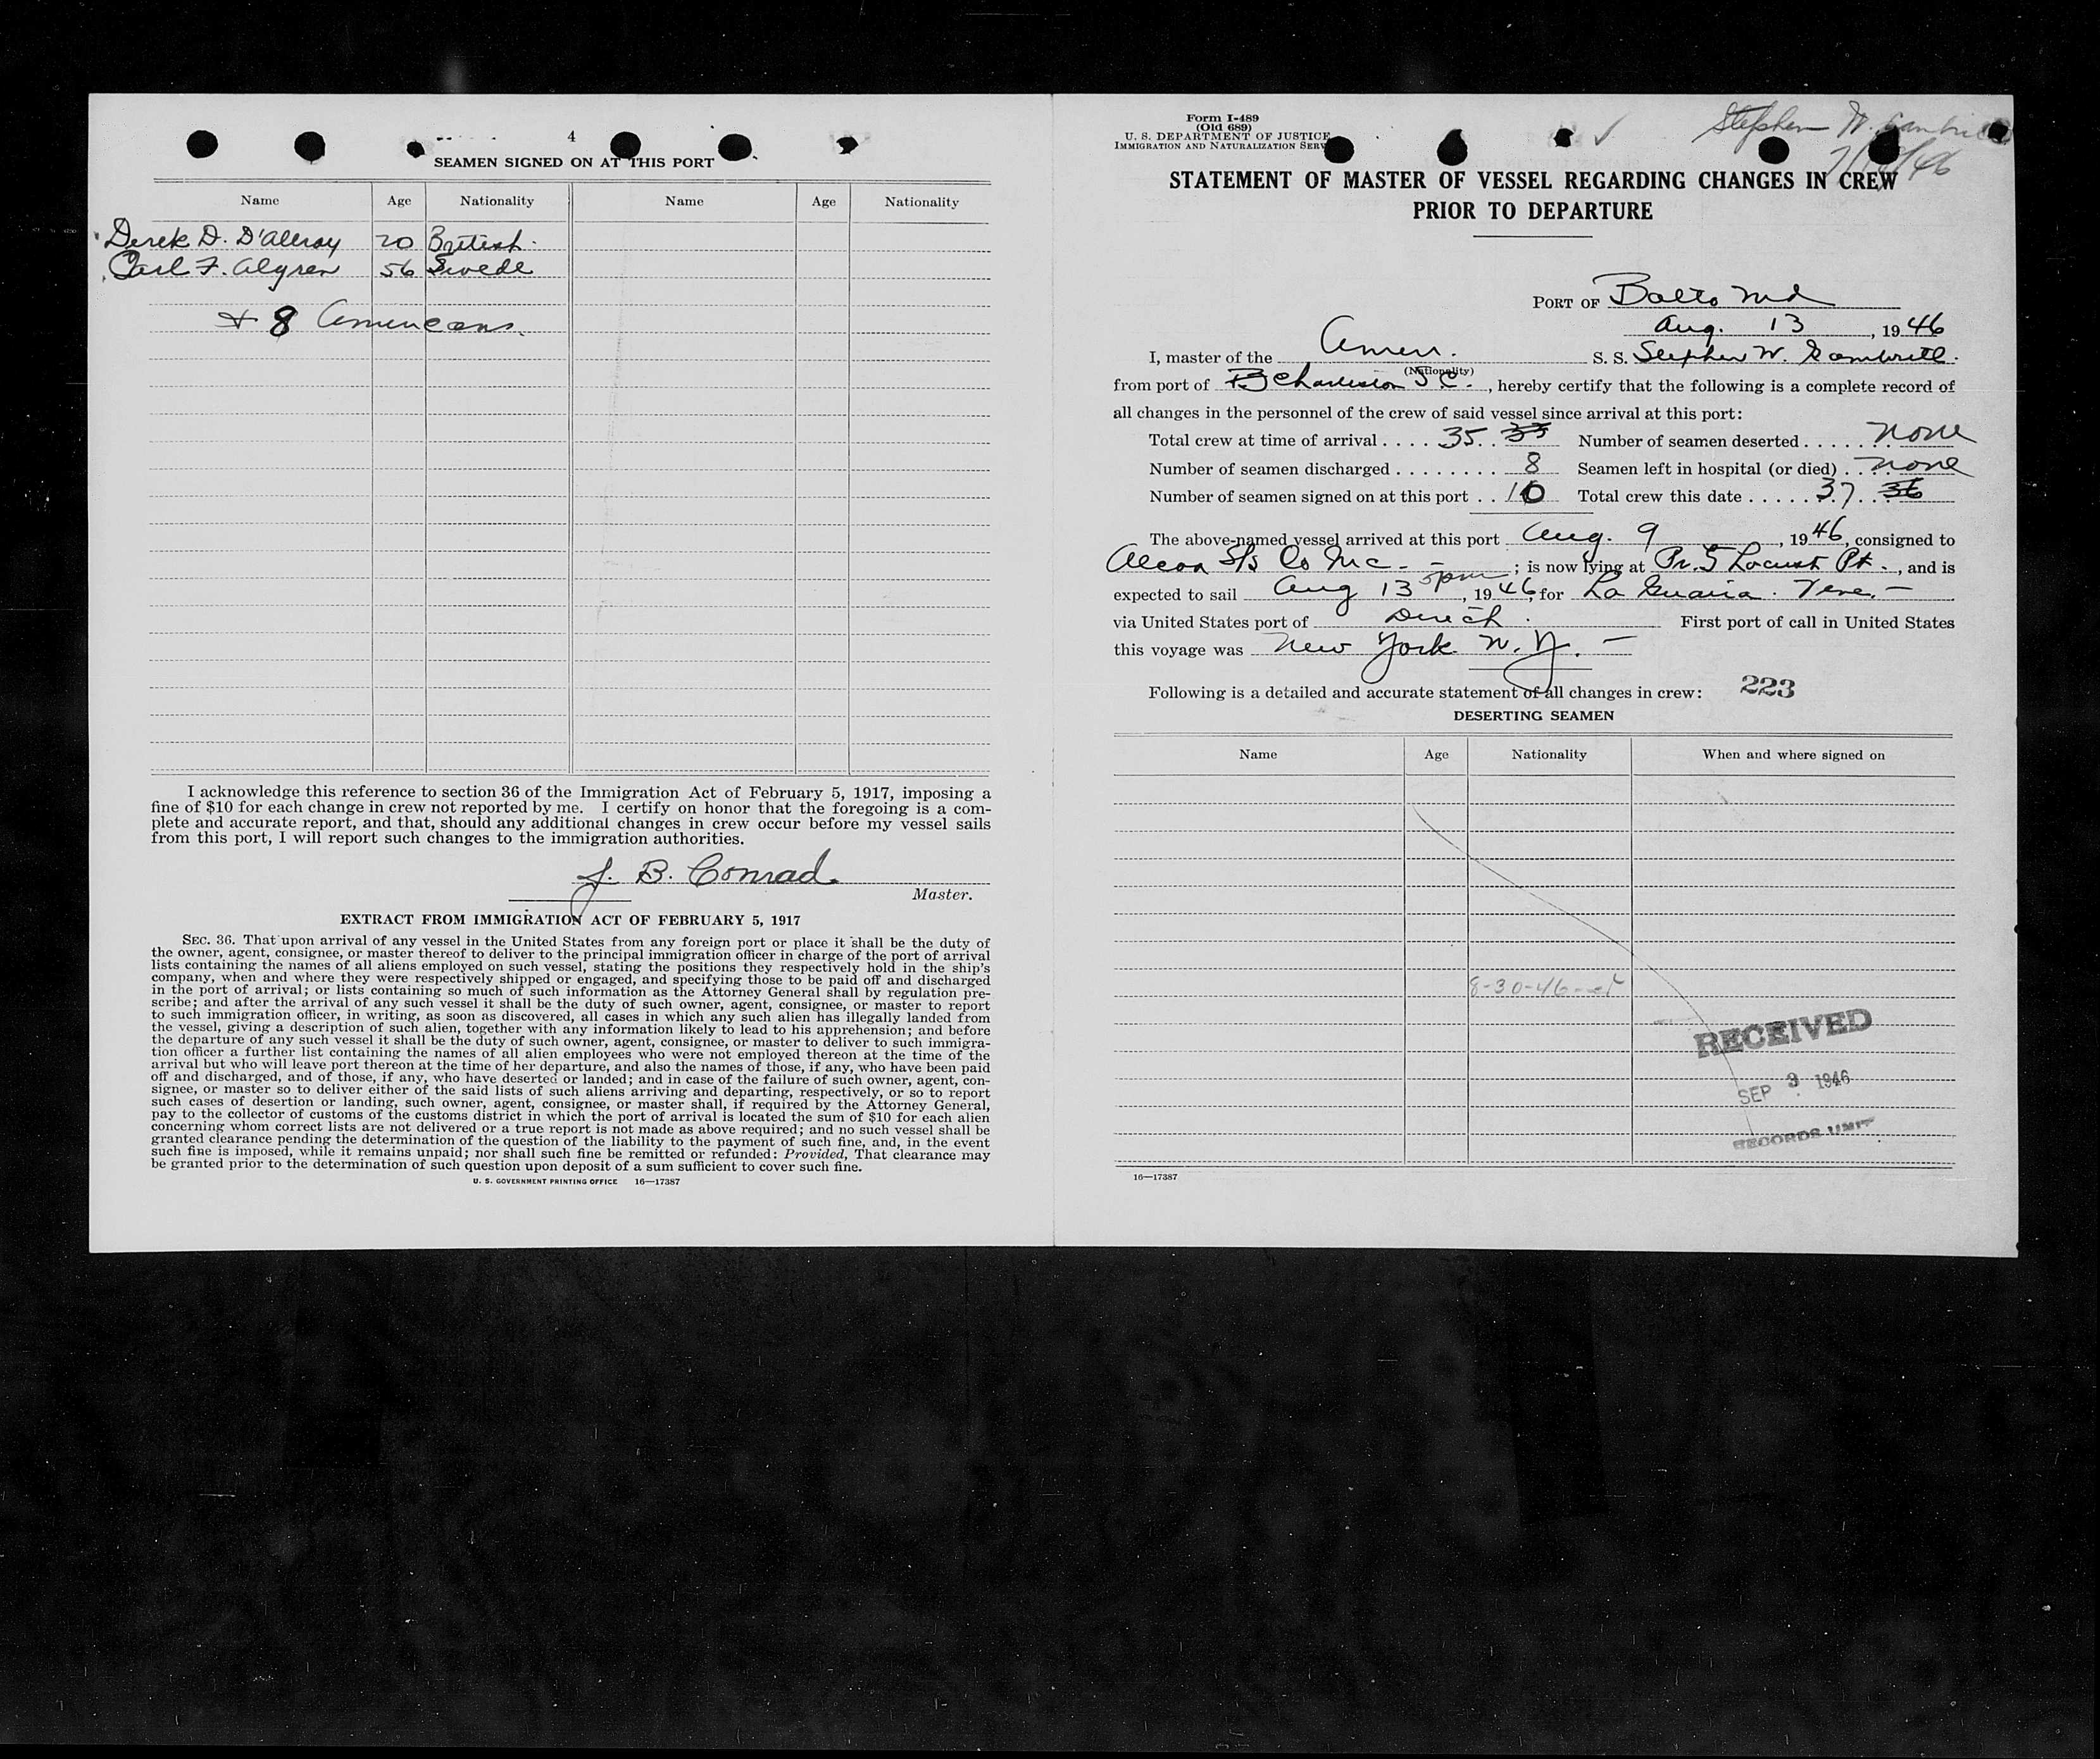 4
SEAMEN SIGNED ON AT THIS PORT
Name Age Nationality Name Age Nationality
Derek D. D'Alroy 20 British
Carl F. Algren 56 Swede
+ 8 Americans.
I acknowledge this reference to section 36 of the Immigration Act of February 5, 1917, imposing a
fine of $10 for each change in crew not reported by me. I certify on honor that the foregoing is a com-
plete and accurate report, and that, should any additional changes in crew occur before my vessel sails
from this port, I will report such changes to the immigration authorities.
J. B. Conrad
Master.
EXTRACT FROM IMMIGRATION ACT OF FEBRUARY 5, 1917
SEC. 36. That upon arrival of any vessel in the United States from any foreign port or place it shall be the duty of
the owner, agent, consignee, or master thereof to deliver to the principal immigration officer in charge of the port of arrival
lists containing the names of all aliens employed on such vessel, stating the positions they respectively hold in the ship's
company, when and where they were respectively shipped or engaged, and specifying those to be paid off and discharged
in the port of arrival; or lists containing so much of such information as the Attorney General shall by regulation pre-
scribe; and after the arrival of any such vessel it shall be the duty of such owner, agent, consignee, or master to report
to such immigration officer, in writing, as soon as discovered, all cases in which any such alien has illegally landed from
the vessel, giving a description of such alien, together with any information likely to lead to his apprehension; and before
the departure of any such vessel it shall be the duty of such owner, agent, consignee, or master to deliver to such immigra-
tion officer a further list containing the names of all alien employees who were not employed thereon at the time of the
arrival but who will leave port thereon at the time of her departure, and also the names of those, if any, who have been paid
off and discharged, and of those, if any, who have deserted or landed; and in case of the failure of such owner, agent, con-
signee, or master so to deliver either of the said lists of such aliens arriving and departing, respectively, or so to report
such cases of desertion or landing, such owner, agent, consignee, or master shall, if required by the Attorney General,
pay to the collector of customs of the customs district in which the port of arrival is located the sum of $10 for each alien
concerning whom correct lists are not delivered or a true report is not made as above required; and no such vessel shall be
granted clearance pending the determination of the question of the liability to the payment of such fine, and, in the event
such fine is imposed, while it remains unpaid; nor shall such fine be remitted or refunded: Provided, That clearance may
be granted prior to the determination of such question upon deposit of a sum sufficient to cover such fine.
U. S. GOVERNMENT PRINTING OFFICE 16—17387
Form I-489
(Old 689)
U. S. DEPARTMENT OF JUSTICE
IMMIGRATION AND NATURALIZATION SERV
Stephen W. Gambrill
STATEMENT OF MASTER OF VESSEL REGARDING CHANGES IN CREW
PRIOR TO DEPARTURE
PORT OF Balto Md
Aug. 13, 1946
I, master of the Amer. S. S. Stephen W. Gambrill.
(Nationality)
from port of Charleston S C., hereby certify that the following is a complete record of
all changes in the personnel of the crew of said vessel since arrival at this port:
Total crew at time of arrival .... 35 Number of seamen deserted ...... none
Number of seamen discharged ........ 8 Seamen left in hospital (or died) .. none
Number of seamen signed on at this port .. 10 Total crew this date ..... 37 36
The above-named vessel arrived at this port Aug. 9, 1946, consigned to
Alcoa S/s Co Inc. ; is now lying at Pr. 5 Locust Pt., and is
expected to sail Aug 13 5pm, 1946, for La Guaira. Vene.
via United States port of Direct. First port of call in United States
this voyage was New York N. Y.
Following is a detailed and accurate statement of all changes in crew: 223
DESERTING SEAMEN
Name Age Nationality When and where signed on
8-30-46
RECEIVED
SEP 3 1946
RECORDS UNIT
16—17387